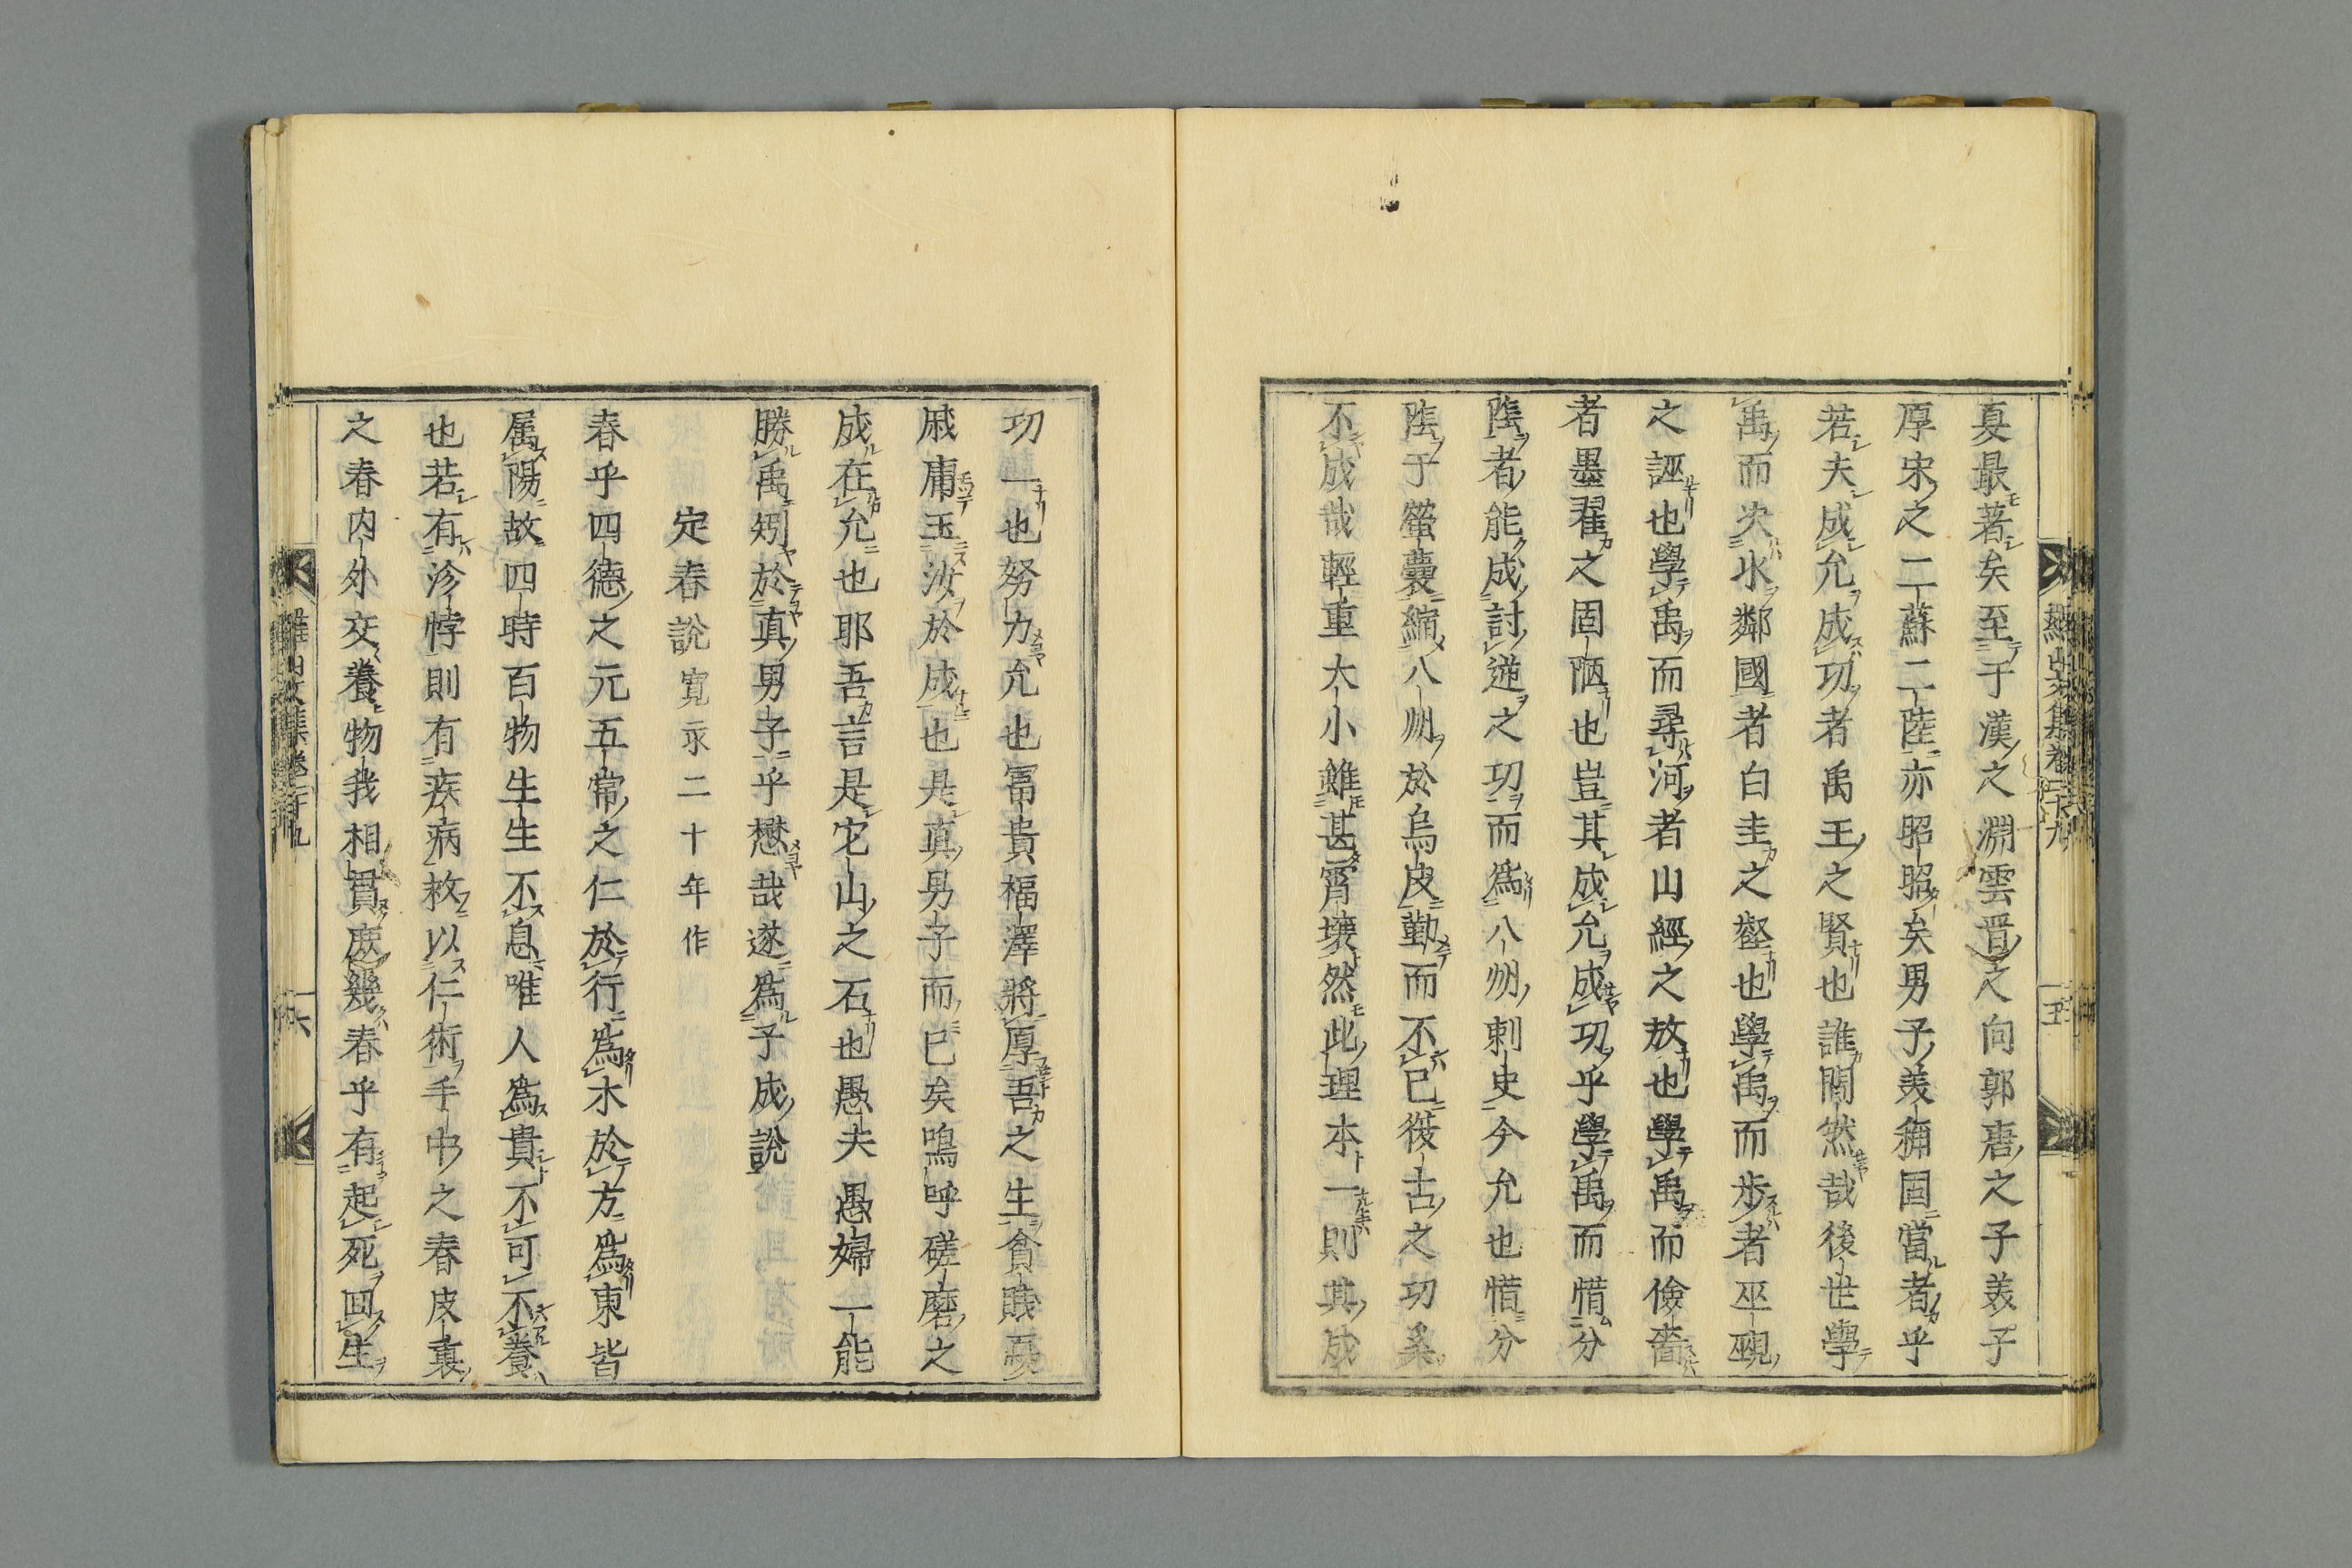 夏最著矣至于漢之淵雲晋之向郭唐之子美子
厚宋之二蘇二陸亦昭昭矣男子美稱固當者乎
若夫成允成功者禹王之賢也誰間然哉後世學
禹而失水鄰國者白圭之壑也學禹而步者巫覡
之誣也學禹而尋河者山經之放也學禹而儉嗇
者墨翟之固陋也豈其成允成功乎學禹而惜分
陰者能成討逆之功而爲八州刺史今允也惜分
陰于螢囊縮八州於烏皮勤而不已從古之功奚
不成哉輕重大小雖甚霄壤然此理本一則其成
功一也努力允也冨貴福澤將厚吾之生貧賤憂
戚庸玉汝於成也是真男子而已矣嗚呼磋磨之
成在允也耶吾言是它山之石也愚夫愚婦一能
勝禹矧於真男子乎懋哉遂爲子成說
定春說寬永二十年作
春乎四德之元五常之仁於行爲木於方爲東皆
属陽故四時百物生生不息唯人爲貴不可不養
也若有沴悖則有疾病救以仁術手中之春皮裏
之春内外交養物我相貫庶幾春乎有起死回生